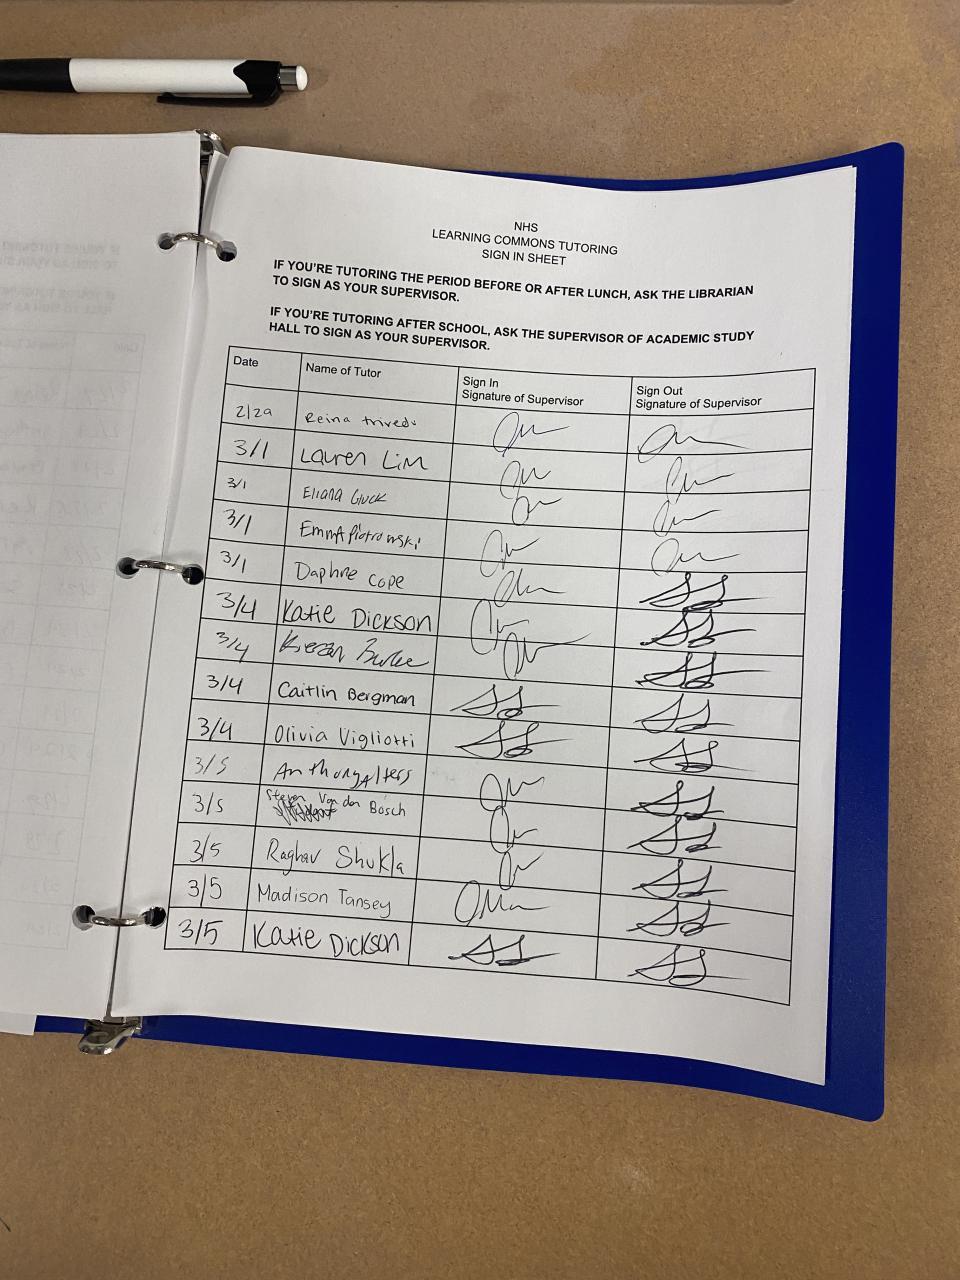 NHS
LEARNING COMMONS TUTORING
SIGN IN SHEET
IF YOU'RE TUTORING THE PERIOD BEFORE OR AFTER LUNCH, ASK THE LIBRARIAN
TO SIGN AS YOUR SUPERVISOR.
IF YOU'RE TUTORING AFTER SCHOOL, ASK THE SUPERVISOR OF ACADEMIC STUDY
HALL TO SIGN AS YOUR SUPERVISOR.
Date Name of Tutor Sign In Signature of Supervisor Sign Out Signature of Supervisor
2/29 Reina trivedi
3/1 Lauren Lim
3/1 Eliana Gluck
3/1 Emma Piotrowski
3/1 Daphne Cope
3/4 Katie Dickson
3/4 Kieran Burke
3/4 Caitlin Bergman
3/4 Olivia Vigliotti
3/5 Anthony Alters
3/5 Steven Van den Bosch
3/5 Raghav Shukla
3/5 Madison Tansey
3/5 Katie Dickson